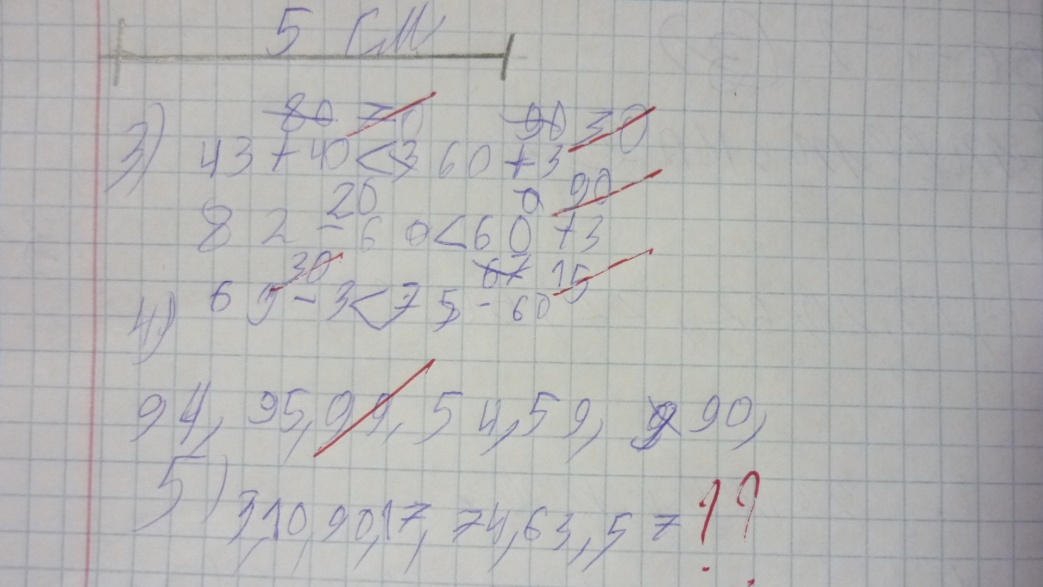 5 см
80 70 90 30
3) 43 + 40 < 60 + 3
20 0 90
82 - 60 < 60 + 3
30 67 15
65 - 3 < 75 - 60
4)
94, 95, 99, 54, 59, 90,
5) 3,10,90,17, 74,63,57 ??